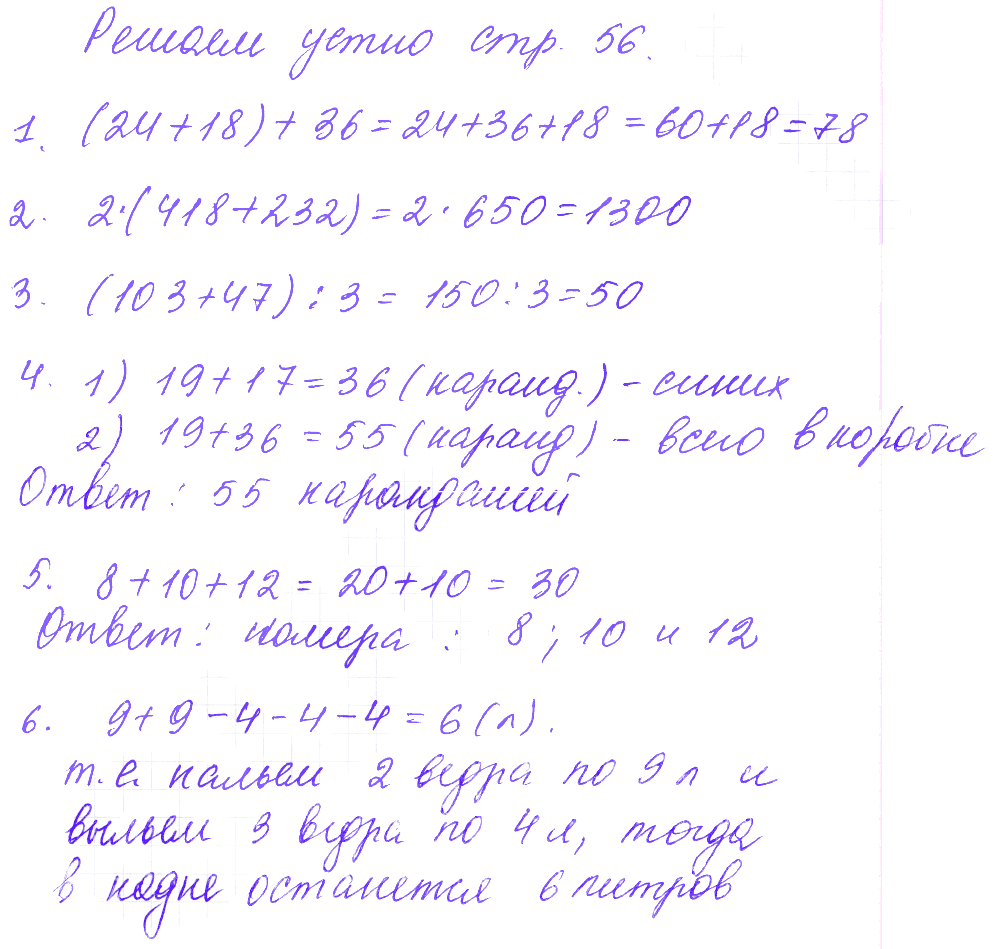 Решаем устно стр. 56.
1. (24+18)+36=24+36+18=60+18=78
2. 2·(418+232)=2·650=1300
3. (103+47):3=150:3=50
4. 1) 19+17=36(каранд.)-синих
2) 19+36=55(каранд)-всего в коробке
Ответ: 55 карандашей
5. 8+10+12=20+10=30
Ответ: номера: 8; 10 и 12
6. 9+9-4-4-4=6(л).
т.е. нальем 2 ведра по 9 л и
выльем 3 ведра по 4 л, тогда
в кадке останется 6 литров